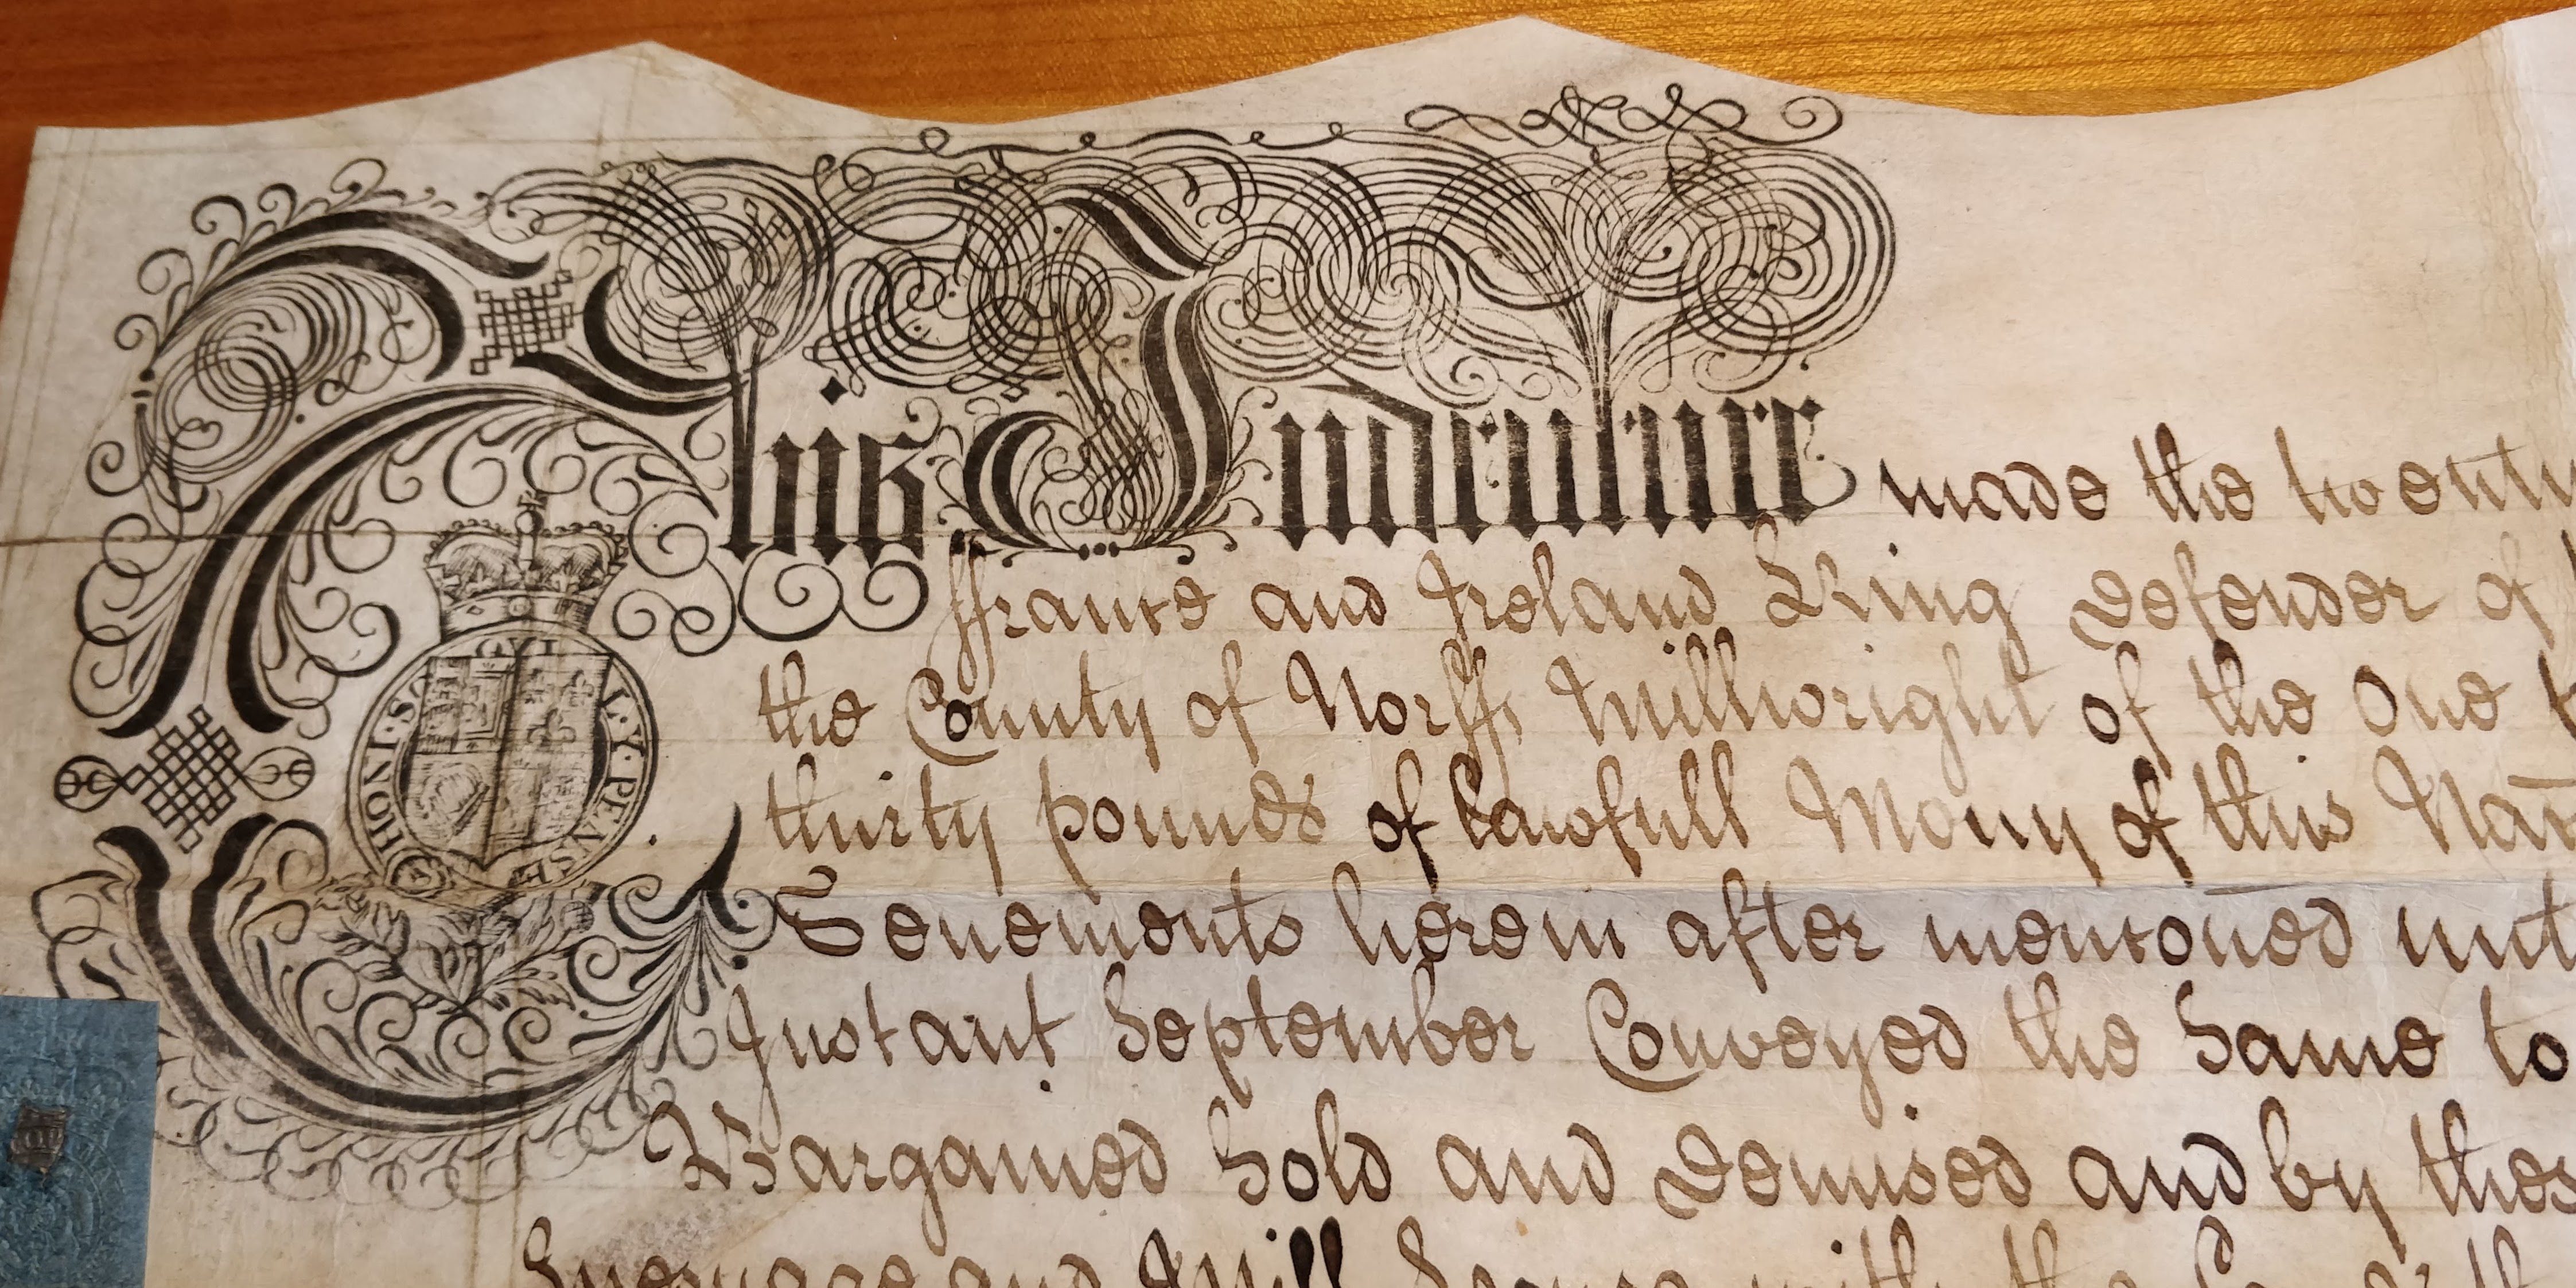 This Indenture made the twenty
ffrance and Ireland King Defender of
the County of Norff Millwright of the One
thirty pounds of lawfull Mony of this
HONI · SO QVI L · Y · PENSE
Tenements herein after mencõned unt
Instant September Conveyed the Same to
Bargained Sold and Demised and by thes
and Mill with the